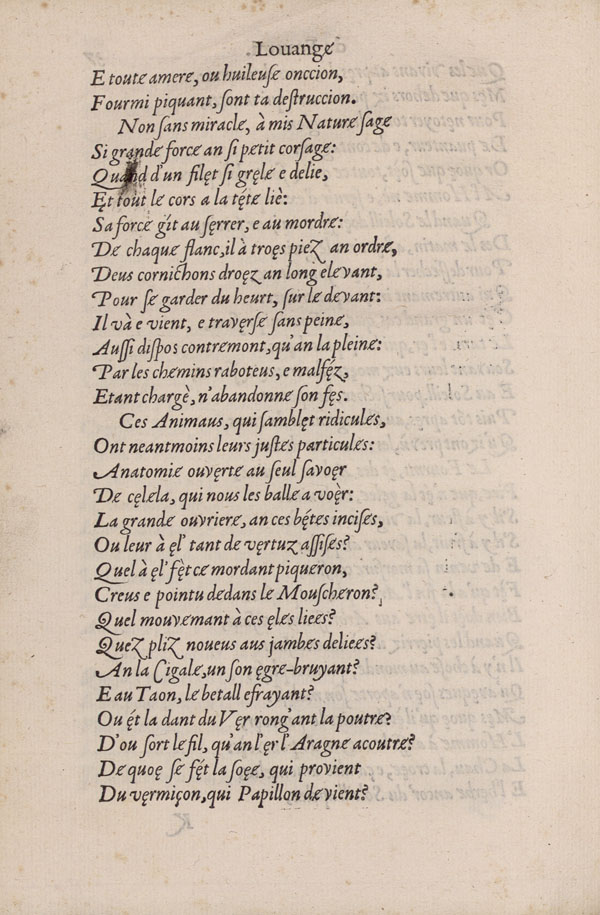 Louangę
E toute amere, ou huileuse onccion,
Fourmi piquant, sont ta destruccion.
Non sans miracle, à mis Nature sage
Si grande force an si petit corsage:
Quand d'un filęt si gręle e delie,
Et tout le cors a la tęte liè:
Sa force gìt au sęrrer, e au mordre:
De chaque flanc, il à troęs piez an ordre,
Deus cornichons droęz an long elevant,
Pour se garder du heurt, sur le devant:
Il và e vient, e travęrse sans peine,
Aussi dispos contremont, qu'an la pleine:
Par les chemins raboteus, e malfęz,
Etant chargè, n'abandonne son fęs.
Ces Animaus, qui samblęt ridicules,
Ont neantmoins leurs justes particules:
Anatomie ouvęrte au seul savoęr
De cęlela, qui nous les balle a voęr:
La grande ouvriere, an ces bętes incises,
Ou leur à ęl' tant de vęrtuz assises?
Quel à ęl' fęt ce mordant piqueron,
Creus e pointu dedans le Mouscheron?
Quel mouvemant à ces ęles liees?
Quez pliz noueus aus jambes deliees?
An la Cigale, un son ęgre-bruyant?
E au Taon, le betall efrayant?
Ou ét la dant du Vęr rong'ant la poutre?
D'ou sort le fil, qu'an l'ęr l'Aragne acoutre?
De quoę se fęt la soęe, qui provient
Du vęrmiçon, qui Papillon devient?
K